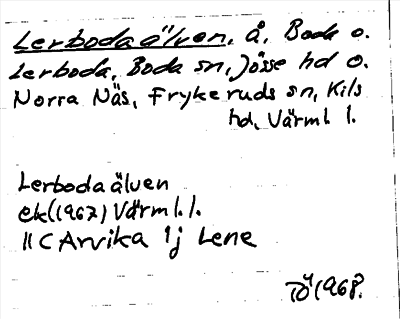 Lerbodaälven, å, Boda o.
Lerboda, Boda sn, Jösse hd o.
Norra Näs, Frykeruds sn, Kils
hd, Värml. l.
Lerbodaälven
ek (1967) Värml. l.
11 C Arvika 1j Lene
TÖ 1968.